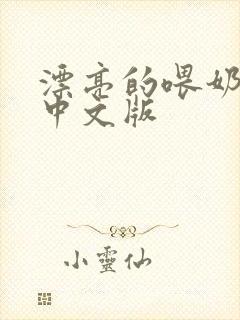 漂亮的喂奶
中文版
小靈仙